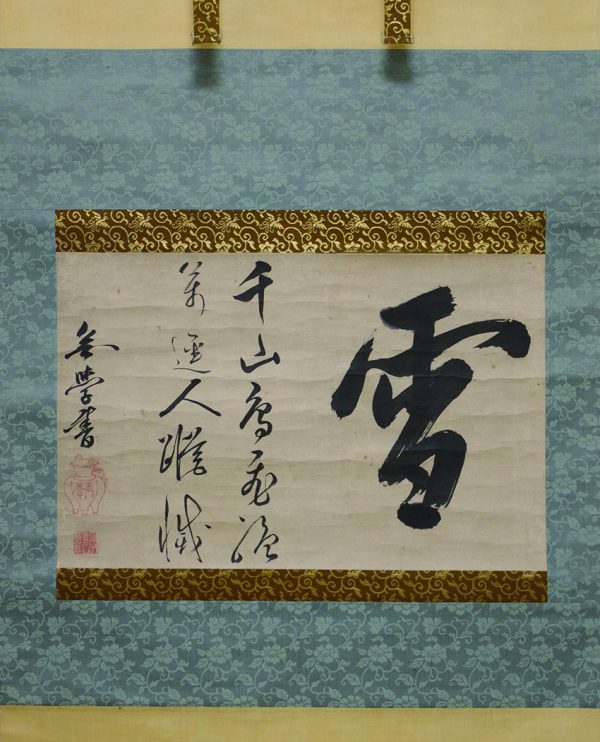 雪
千山鳥飛絶
萬逕人蹤滅
無學書